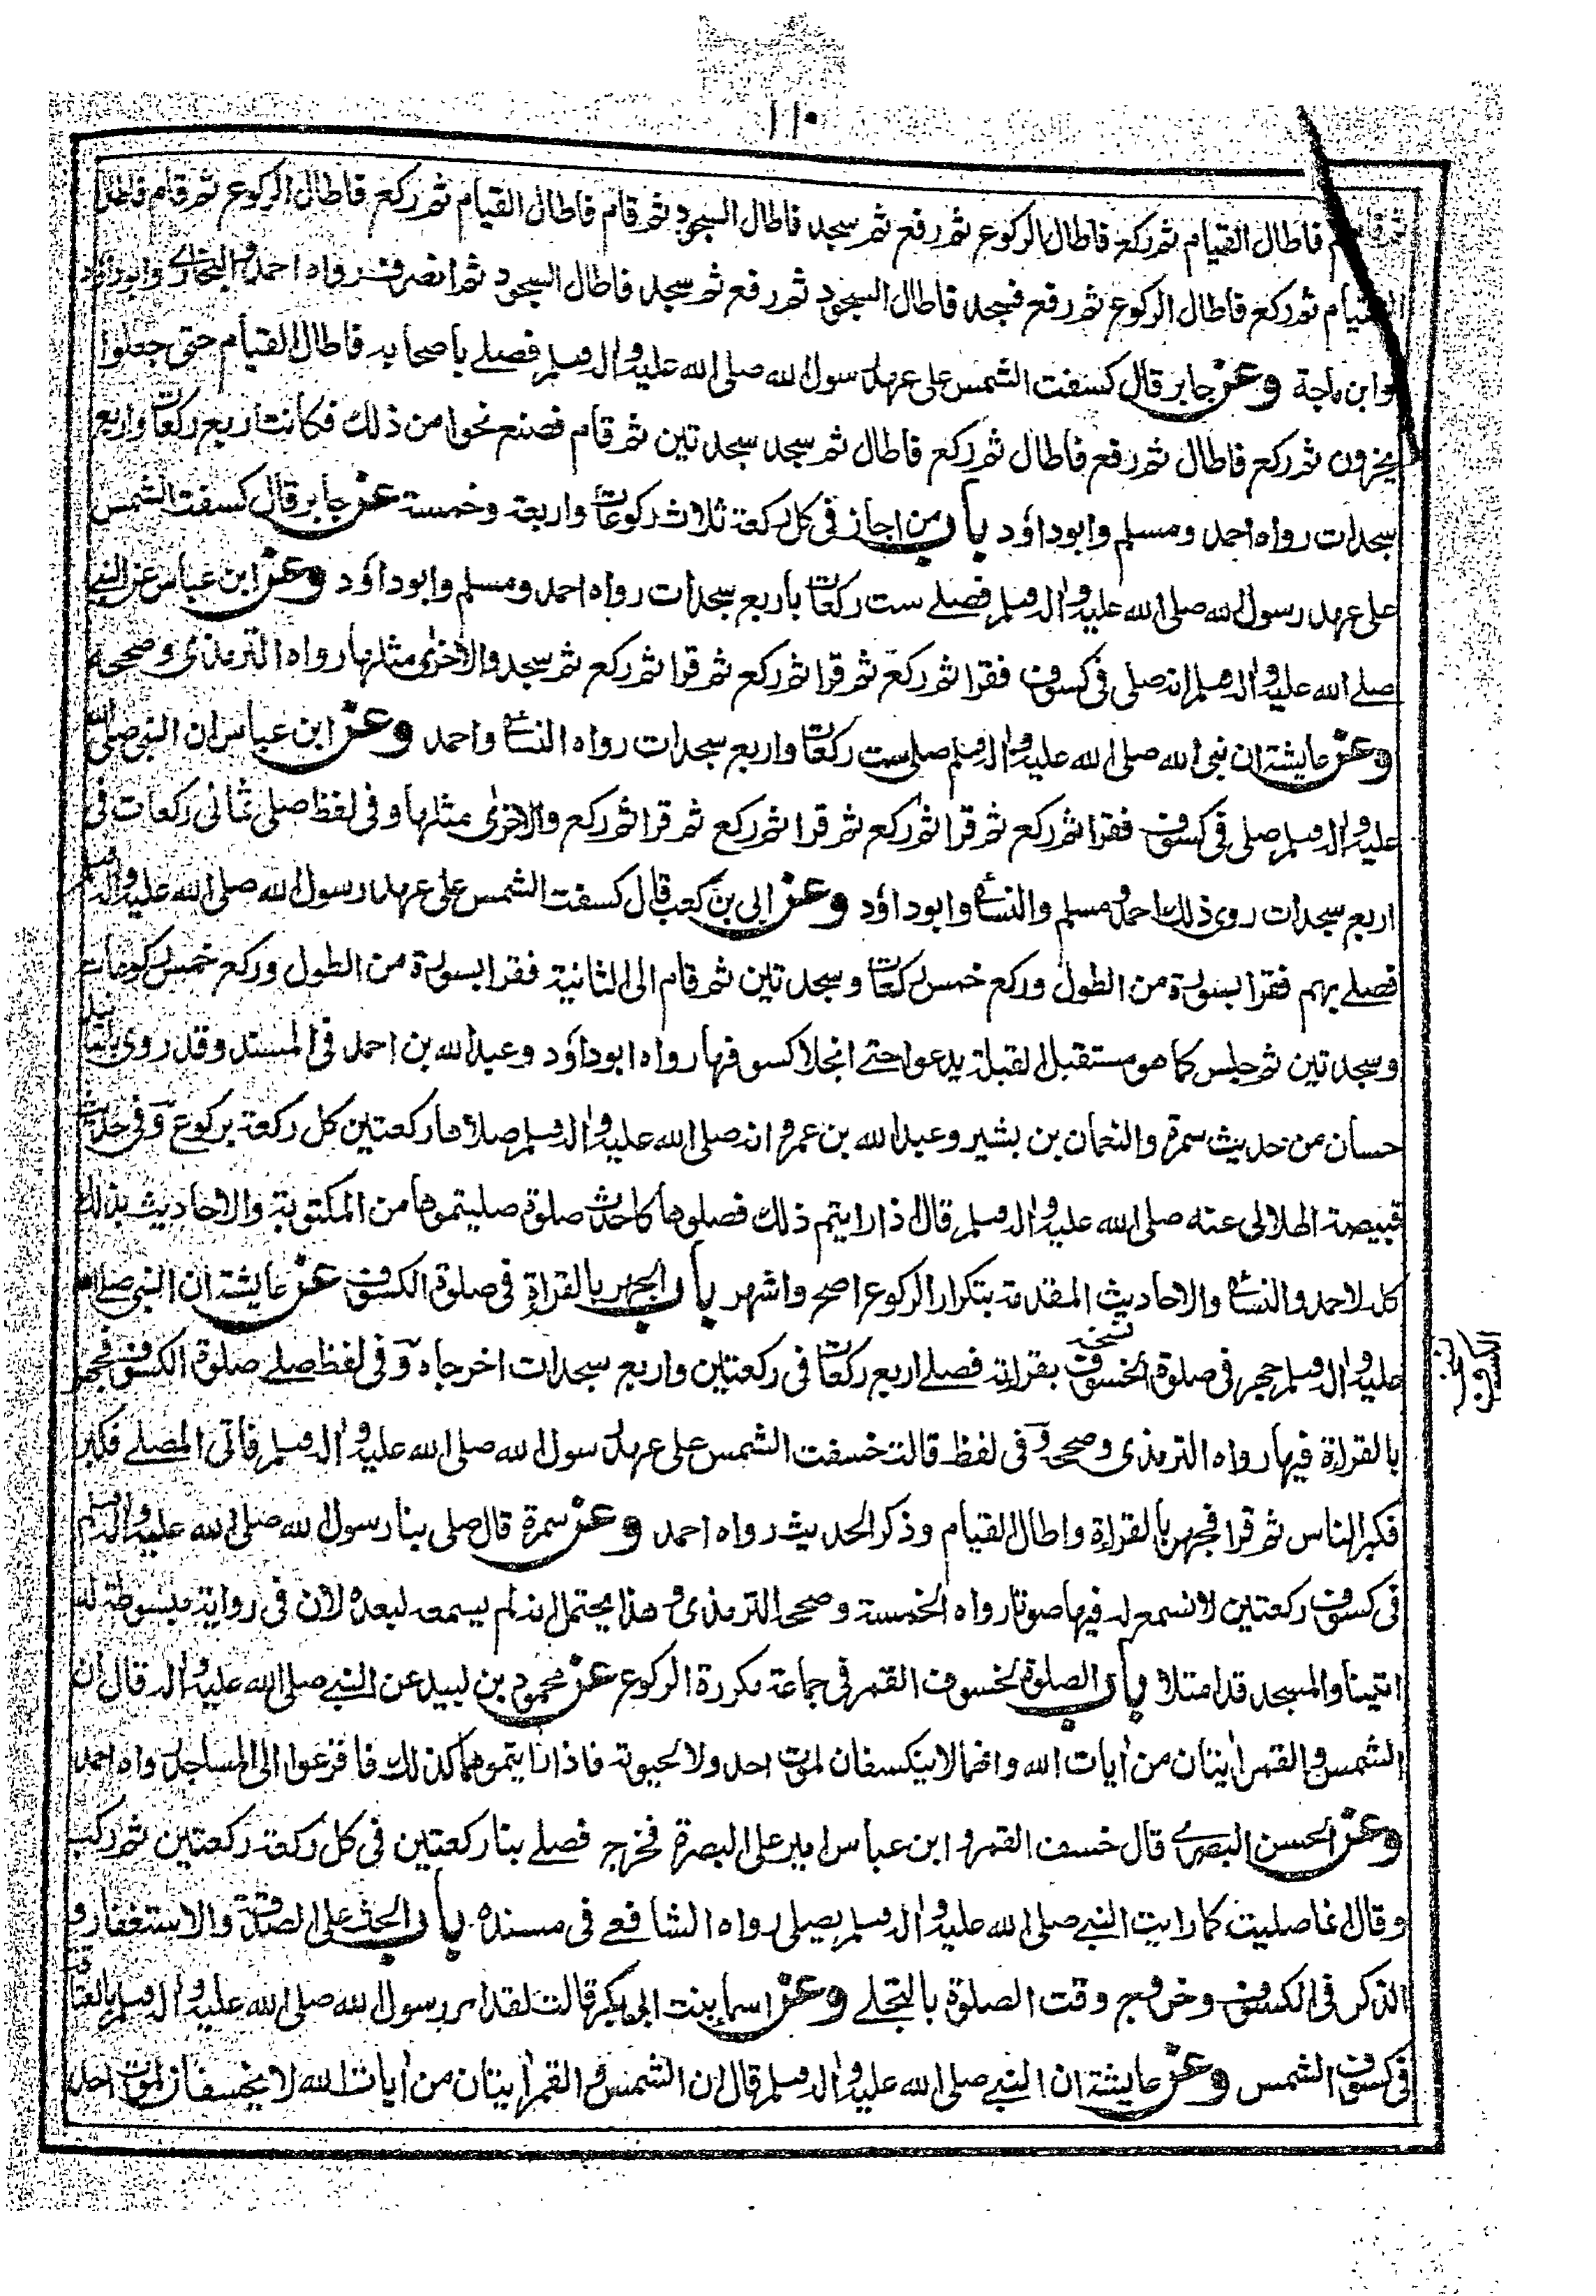 ١١٠
ثم قام فاطال القيام ثم ركع فاطال الركوع ثم رفع ثم سجد فاطال السجود ثم قام فاطال القيام ثم ركع فاطال الركوع ثم قام فاطال
القيام ثم ركع فاطال الركوع ثم رفع فسجد فاطال السجود ثم رفع ثم سجد فاطال السجود ثم انصرف رواه احمد والبخاري وابوداود
وابن ماجة وعن جابر قال كسفت الشمس على عهد رسول الله صلى الله عليه واله وسلم فصلے باصحابه فاطال القيام حتى جعلوا
يخرون ثم ركع فاطال ثم رفع فاطال ثم ركع فاطال ثم سجد سجدتين ثم قام فصنع نحوا من ذلك فكانت اربع ركعات واربع
سجدات رواه احمد ومسلم وابوداود باب من اجاز فى كل ركعة ثلاث ركوعات واربعة وخمسة عن جابر قال كسفت الشمس
على عهد رسول الله صلى الله عليه واله وسلم فصلے ست ركعات باربع سجدات رواه احمد ومسلم وابوداود وعن ابن عباس عن النبي
صلے الله عليه واله وسلم انه صلى فى كسوف فقرا ثم ركع ثم قرا ثم ركع ثم قرا ثم ركع ثم سجد والاخرى مثلها رواه الترمذى وصححه
وعن عايشة ان نبى الله صلى الله عليه واله وسلم صلى ست ركعات واربع سجدات رواه النسائے واحمد وعن ابن عباس ان النبى صلى الله
عليه واله وسلم صلى فى كسوف فقرا ثم ركع ثم قرا ثم ركع ثم قرا ثم ركع ثم قرا ثم ركع والاخرى مثلها وفى لفظ صلى ثمانى ركعات فى
اربع سجدات روى ذلك احمد ومسلم والنسائے وابوداود وعن ابى بن كعب قال كسفت الشمس على عهد رسول الله صلى الله عليه واله وسلم
فصلے بهم فقرا بسورة من الطول وركع خمس ركعات وسجدتين ثم قام الى الثانية فقرا بسورة من الطول وركع خمس ركوعات
وسجدتين ثم جلس كما هو مستقبل القبلة يدعوا حتے انجلا كسوفها رواه ابوداود وعبد الله بن احمد فى المسند وقد روى باسانيد
حسان من حديث سمرة والنعمان بن بشير وعبد الله بن عمرو انه صلى الله عليه واله وسلم صلاها ركعتين كل ركعة بركوع وفى حديث
قبيصة الهلالى عنه صلى الله عليه واله وسلم قال اذا رايتم ذلك فصلوها كاحدث صلوة صليتموها من المكتوبة والاحاديث بذلك
كله لاحمد والنسائے والاحاديث المقدمة بتكرار الركوع اصح واشهر باب الجهر بالقراة فى صلوة الكسوف عن عايشة ان النبى صلى الله
عليه واله وسلم جهر فى صلوة الخسوف بقراته فصلے اربع ركعات فى ركعتين واربع سجدات اخرجاه وفى لفظ صلے صلوة الكسوف فجهر
بالقراة فيها رواه الترمذى وصححه وفى لفظ قالت خسفت الشمس على عهد رسول الله صلى الله عليه واله وسلم فاتى المصلے فكبر
فكبر الناس ثم قرا فجهر بالقراة واطال القيام وذكر الحديث رواه احمد وعن سمرة قال صلى بنا رسول الله صلى الله عليه واله وسلم
فى كسوف ركعتين لا نسمع له فيها صوتا رواه الخمسة وصححه الترمذى وهذا يحتمل انه لم يسمعه لبعده لان فى رواية مبسوطة له
اتينا والمسجد قد امتلا باب الصلوة لخسوف القمر فى جماعة مكررة الركوع عن محمود بن لبيد عن النبے صلى الله عليه واله قال ان
الشمس والقمر ايتان من ايات الله وانهما لا ينكسفان لموت احد ولا لحيوته فاذا رايتموهما كذلك فافزعوا الى المساجد رواه احمد
وعن الحسن البصرے قال خسف القمر وابن عباس امير على البصرة فخرج فصلے بنا ركعتين فى كل ركعة ركعتين ثم ركب
وقال انما صليت كما رايت النبے صلى الله عليه واله وسلم يصلى رواه الشافعے فى مسنده باب الحث على الصدقة والاستغفار و
الذكر فى الكسوف وخروج وقت الصلوة بالتجلے وعن اسماء بنت ابى بكر قالت لقد امر رسول الله صلى الله عليه واله وسلم بالعتاقة
فى كسوف الشمس وعن عايشة ان النبے صلى الله عليه واله وسلم قال ان الشمس والقمر ايتان من ايات الله لا يخسفان لموت احد
نسخه
الكسوف